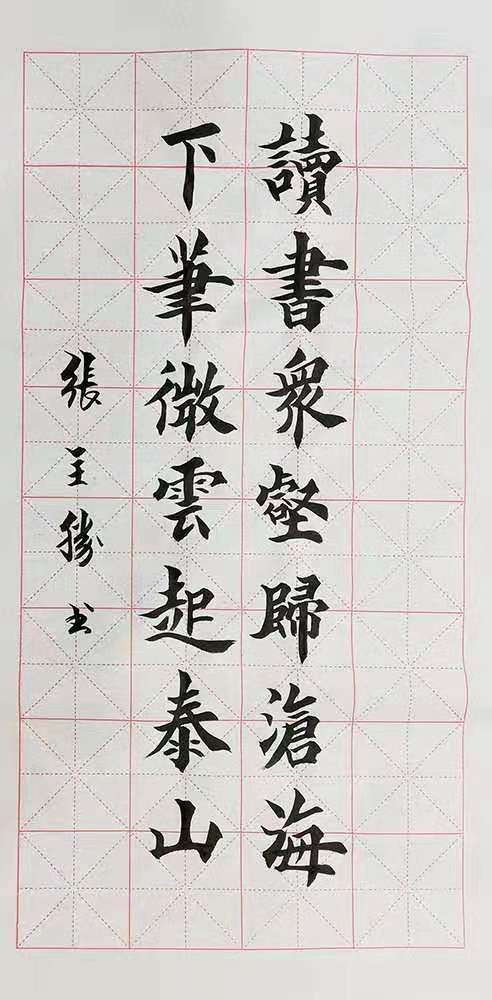 讀書衆壑歸滄海
下筆微雲起泰山
張勝书